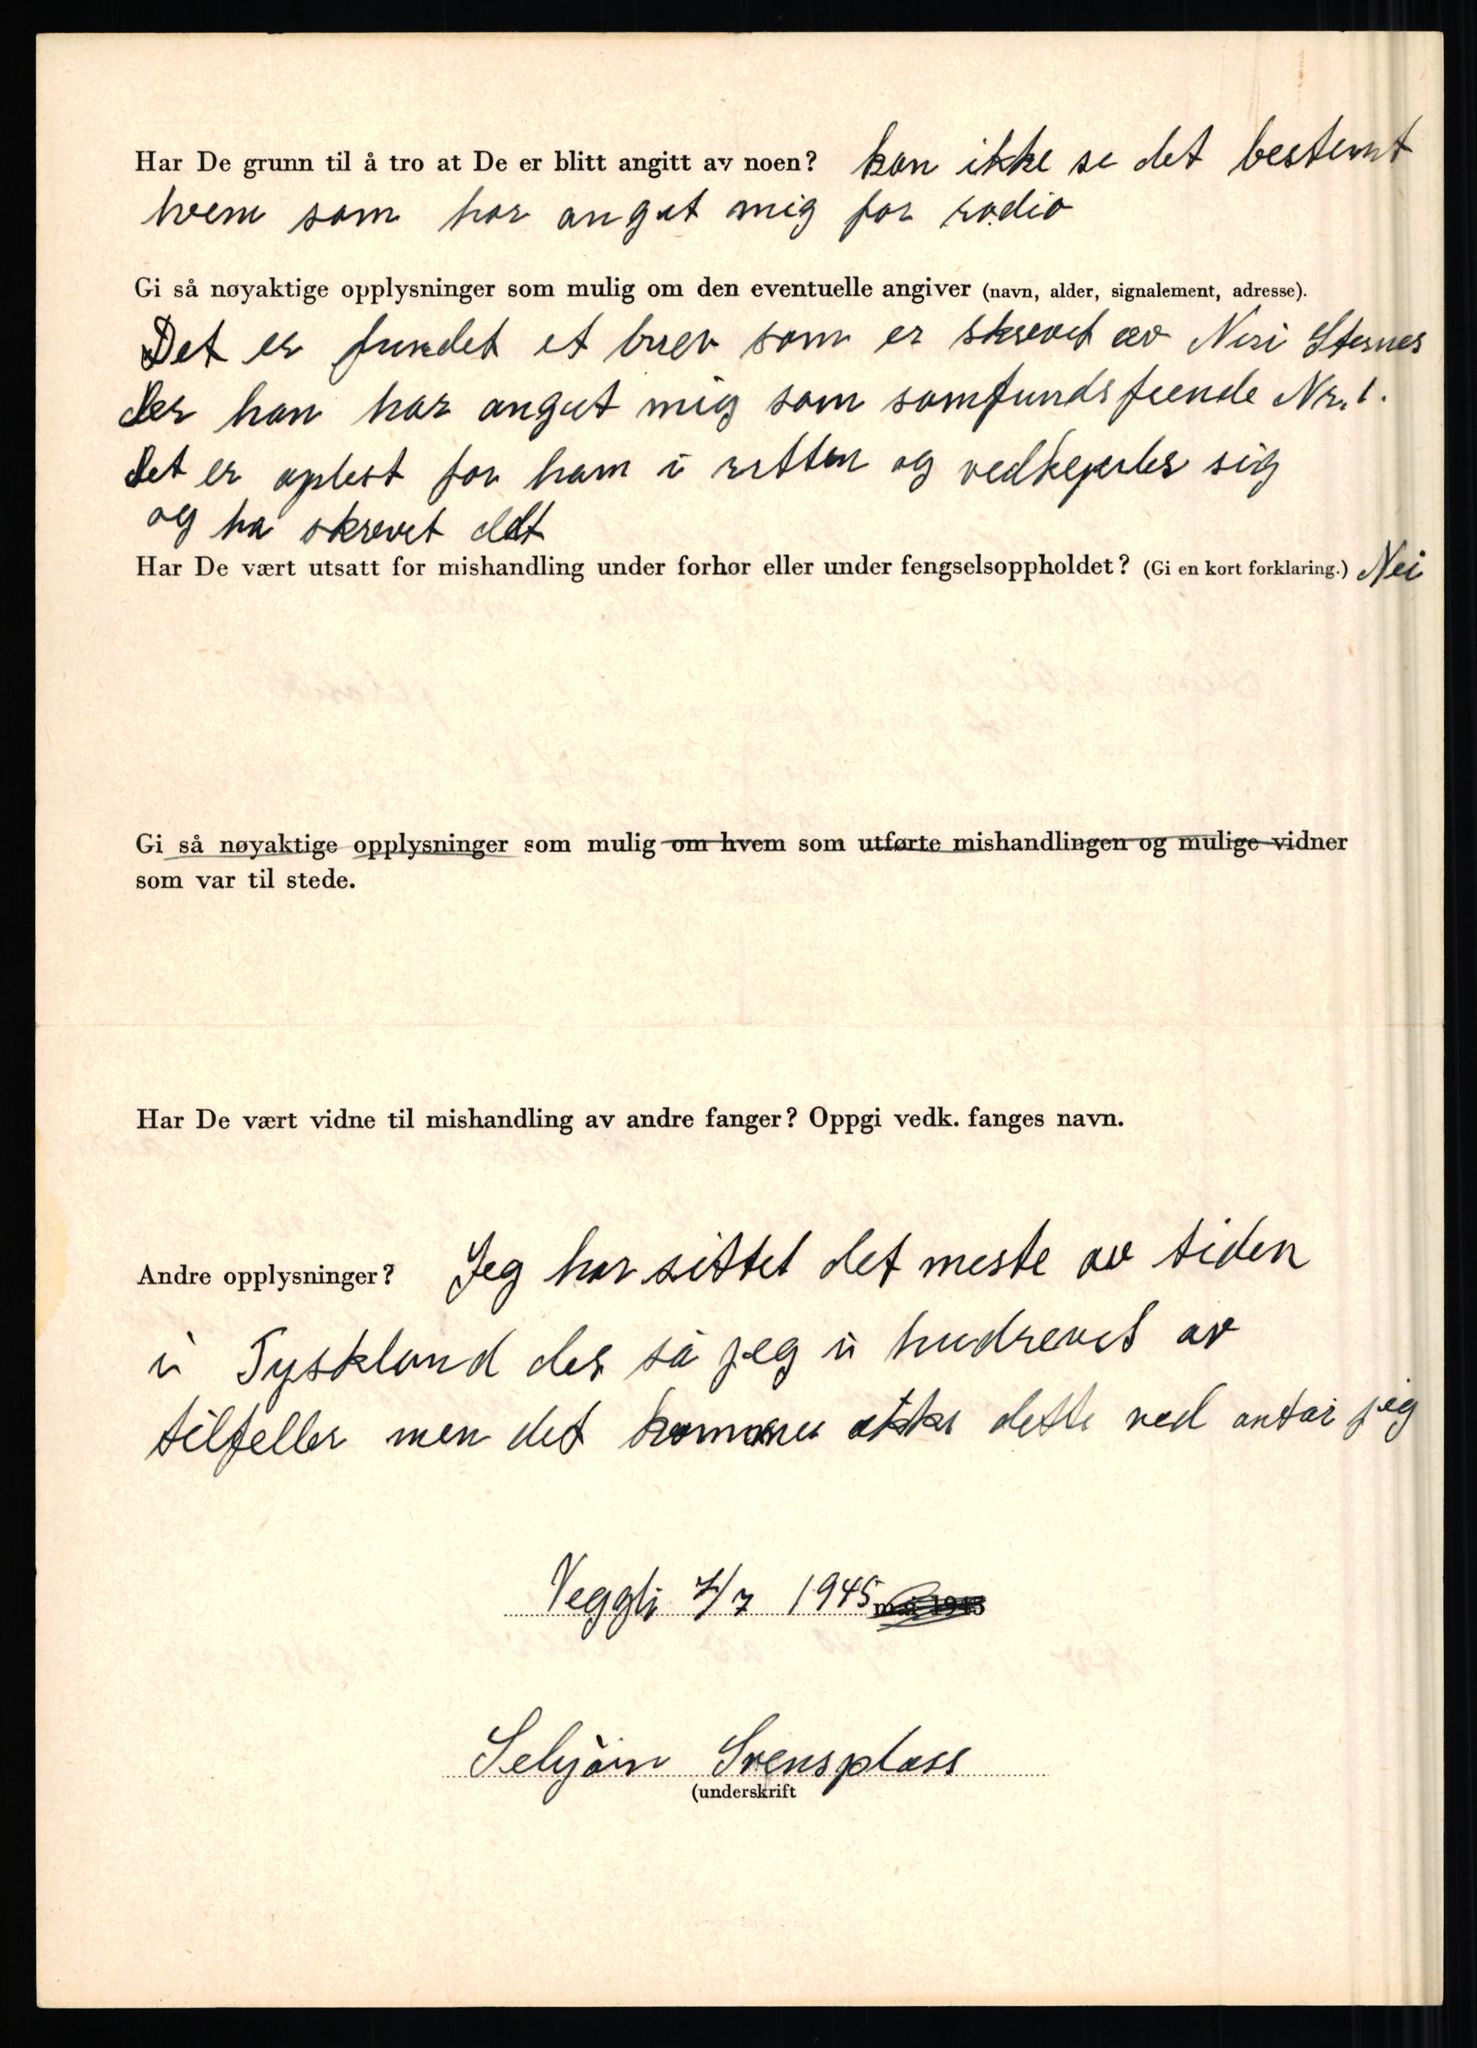 Har De grunn til å tro at De er blitt angitt av noen? kan ikke se det bestemt
hvem som har anget mig for radio
Gi så nøyaktige opplysninger som mulig om den eventuelle angiver (navn, alder, signalement, adresse).
Det er fundet et brev som er skrevet av Neri Sternes
der han har anget mig som samfundsfiende Nr. 1.
Det er oplest for ham i retten og vedkjender sig
og ha skrevet det
Har De vært utsatt for mishandling under forhør eller under fengselsoppholdet? (Gi en kort forklaring.) Nei
Gi så nøyaktige opplysninger som mulig om hvem som utførte mishandlingen og mulige vidner
som var til stede.
Har De vært vidne til mishandling av andre fanger? Oppgi vedk. fanges navn.
Andre opplysninger? Jeg har sittet det meste av tiden
i Tyskland der så jeg i hudrevet av
tilfeller men det kommer ikke dette ved antar jeg
Veggli 7/7 1945 mai 1945
Svensplass
(underskrift